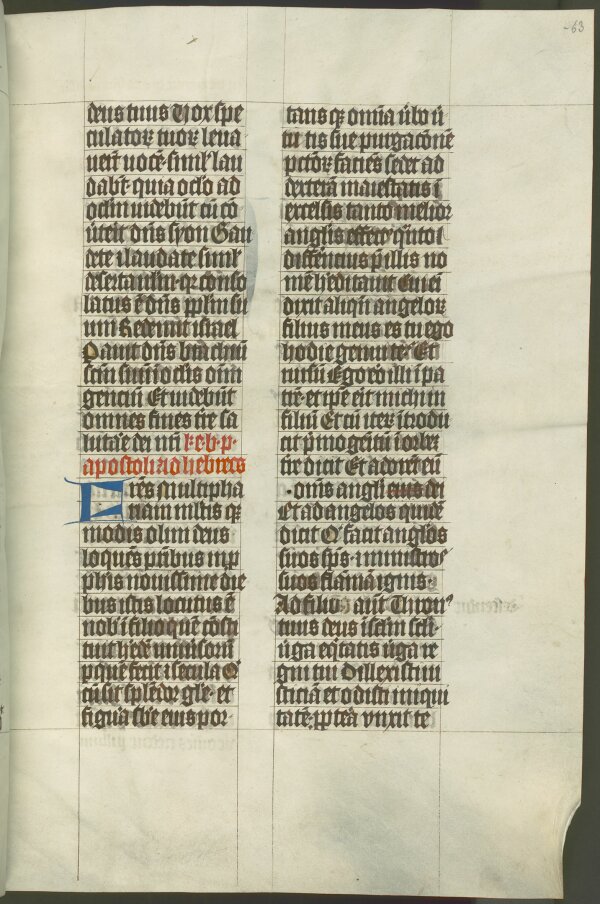 -63
deus tuus Vox spe
culatoꝝ tuoꝝ leua
uerūt uocē simĺ lau
dabt· quia oclo ad
oclm uidebūt cū cō
ūtit dn̄s syon Gau
dete ⁊ laudate simĺ
deserta iꝉrꝉm· qꝛ conso
latus ē dn̄s pplm su
um Redemit israel
Parauit dn̄s brachiū
scm̄ suuū ī oclis om̄
genciū Et uidebūt
omnes fines tr̄e sa
lutaꝛe dei nr̄i
apostoli ad hebreos
Fr̄es Multipha
riam multis qꝫ
modis olim deus
loquēs pr̄ibus in ꝓ
phīs nouissime die
bus istis locutus ē
nob̄ ī filio quē cōsti
tuit h̄edē uniūsoꝝ
ꝑ quē fecit ⁊ secula Q
cū sit splēdor gl̄e· et
figura sb̄e eius por·
tans qꝫ omīa ūbo ū
tutis sue purgac̄onē
pctōꝝ faciēs sedet ad
dexterā maiestatis ī
excelsis tanto melior
anglis effectꝰ qnto
differencius p̄ illis no
mē h̄editauit Cui eī
dixit aliqn̄ angeloꝝ
filius meus es tu ego
hodie genui te Et
rursū Ego ero illi ī pa
trē· et ip̄e erit michi in
filiū Et cū iteꝝ ītrodu
cit p̄mogētū ī orbeꝫ
tr̄e dicit Et adorēt eū
·om̄s angli eius dei
Et ad angelos quidē
dicit Q facit anglos
suos sp̄s· ⁊ ministros
suos flāmā ignis·
Ad filiū aūt Thronꝰ
tuus deus ī sclm scl̄i·
ūga eq̄tatis ūga re
gni tui Dillexisti iu
sticiā et odisti iniqui
tatē· ꝓptea vnxit te